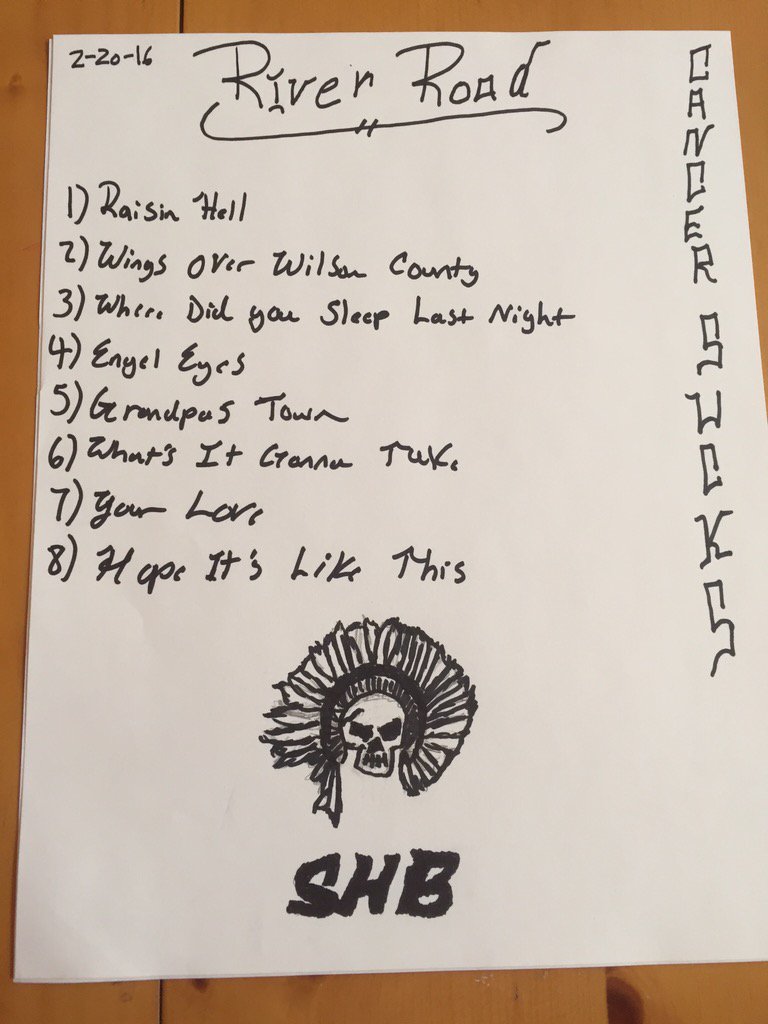 2-20-16
River Road
1) Raisin Hell
2) Wings over Wilson County
3) Where Did you Sleep Last Night
4) Engel Eyes
5) Grandpas Town
6) What's It Gonna Take
7) Your Love
8) Hope It's Like This
SHB
CANCER SUCKS